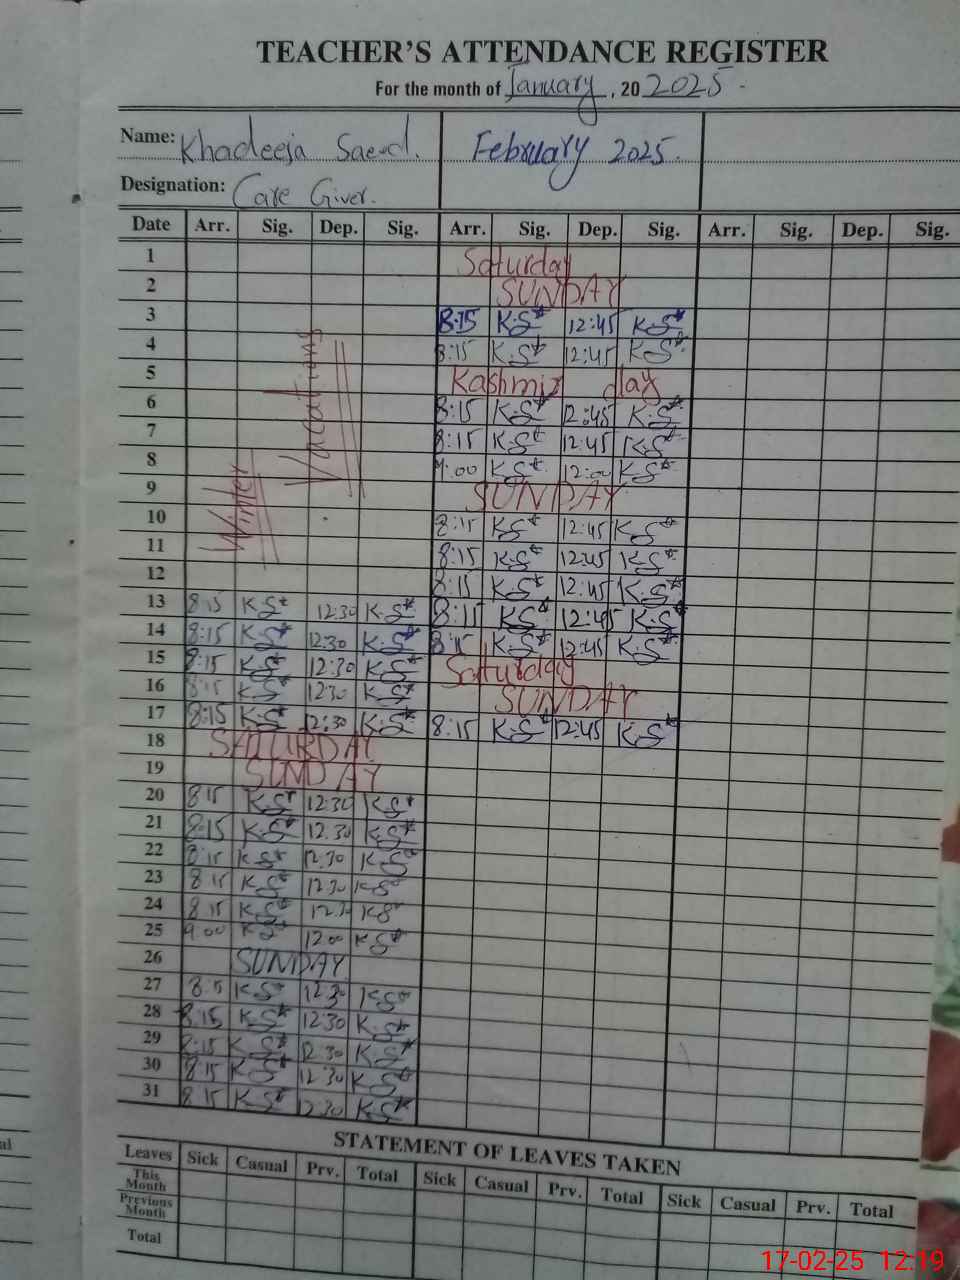 TEACHER'S ATTENDANCE REGISTER
For the month of January, 20 2025
Name: Khadeeja Saeed. February 2025.
Designation: Care Giver.
Date Arr. Sig. Dep. Sig. Arr. Sig. Dep. Sig. Arr. Sig. Dep. Sig.
Winter Vacations
1 Saturday
2 SUNDAY
3 8:15 K.S 12:45 K.S
4 8:15 K.S 12:45 K.S
5 Kashmir day
6 8:15 K.S 12:45 K.S
7 8:15 K.S 12:45 K.S
8 9:00 K.S 12:00 K.S
9 SUNDAY
10 8:15 K.S 12:45 K.S
11 8:15 K.S 12:45 K.S
12 8:15 K.S 12:45 K.S
13 8:15 K.S 12:30 K.S 8:15 K.S 12:45 K.S
14 8:15 K.S 12:30 K.S 8:15 K.S 12:45 K.S
15 8:15 K.S 12:30 K.S Saturday
16 8:15 K.S 12:30 K.S SUNDAY
17 8:15 K.S 12:30 K.S 8:15 K.S 12:45 K.S
18 SATURDAY
19 SUNDAY
20 8:15 K.S 12:30 K.S
21 8:15 K.S 12:30 K.S
22 8:15 K.S 12:30 K.S
23 8:15 K.S 12:30 K.S
24 8:15 K.S K.S
25 9:00 K.S 12:00 K.S
26 SUNDAY
27 K.S 12:30 K.S
28 8:15 K.S 12:30 K.S
29 8:15 K.S 12:30 K.S
30 8:15 K.S 12:30 K.S
31 8:15 K.S 12:30 K.S
STATEMENT OF LEAVES TAKEN
Leaves Sick Casual Prv. Total Sick Casual Prv. Total Sick Casual Prv. Total
This Month
Previous Month
Total
17-02-25 12:19